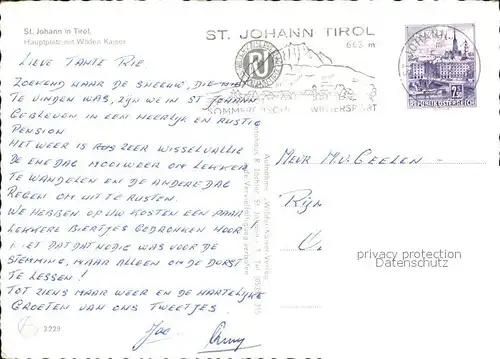 St. Johann in Tirol,
Hauptplatz mit Wilden Kaiser
ST. JOHANN TIROL
663 m
SOMMERFRISCHE WINTERSPORT
REPUBLIK ÖSTERREICH
LIEVE TANTE RIE
ZOEKEND NAAR DE SNEEUW, DIE NIET
TE VINDEN WAS, ZIJN WE IN ST JOHANN
GEBLEVEN IN EEN HEERLIJK EN RUSTIG
PENSION
HET WEER IS ZEER WISSELVALLIG
DE ENE DAG MOOI WEER OM LEKKER
TE WANDELEN EN DE ANDERE DAG
REGEN OM UIT TE RUSTEN.
WE HEBBEN OP UW KOSTEN EEN PAAR
LEKKERE BIERTJES GEDRONKEN HOOR!
NIET DAT DAT NODIG WAS VOOR DE
STEMMING, MAAR ALLEEN OM DE DORST
TE LESSEN!
TOT ZIENS MAAR WEER EN DE HARTELIJKE
GROETEN VAN ONS TWEETJES.
3229
MEVR
GEELEN
privacy protection
Datenschutz